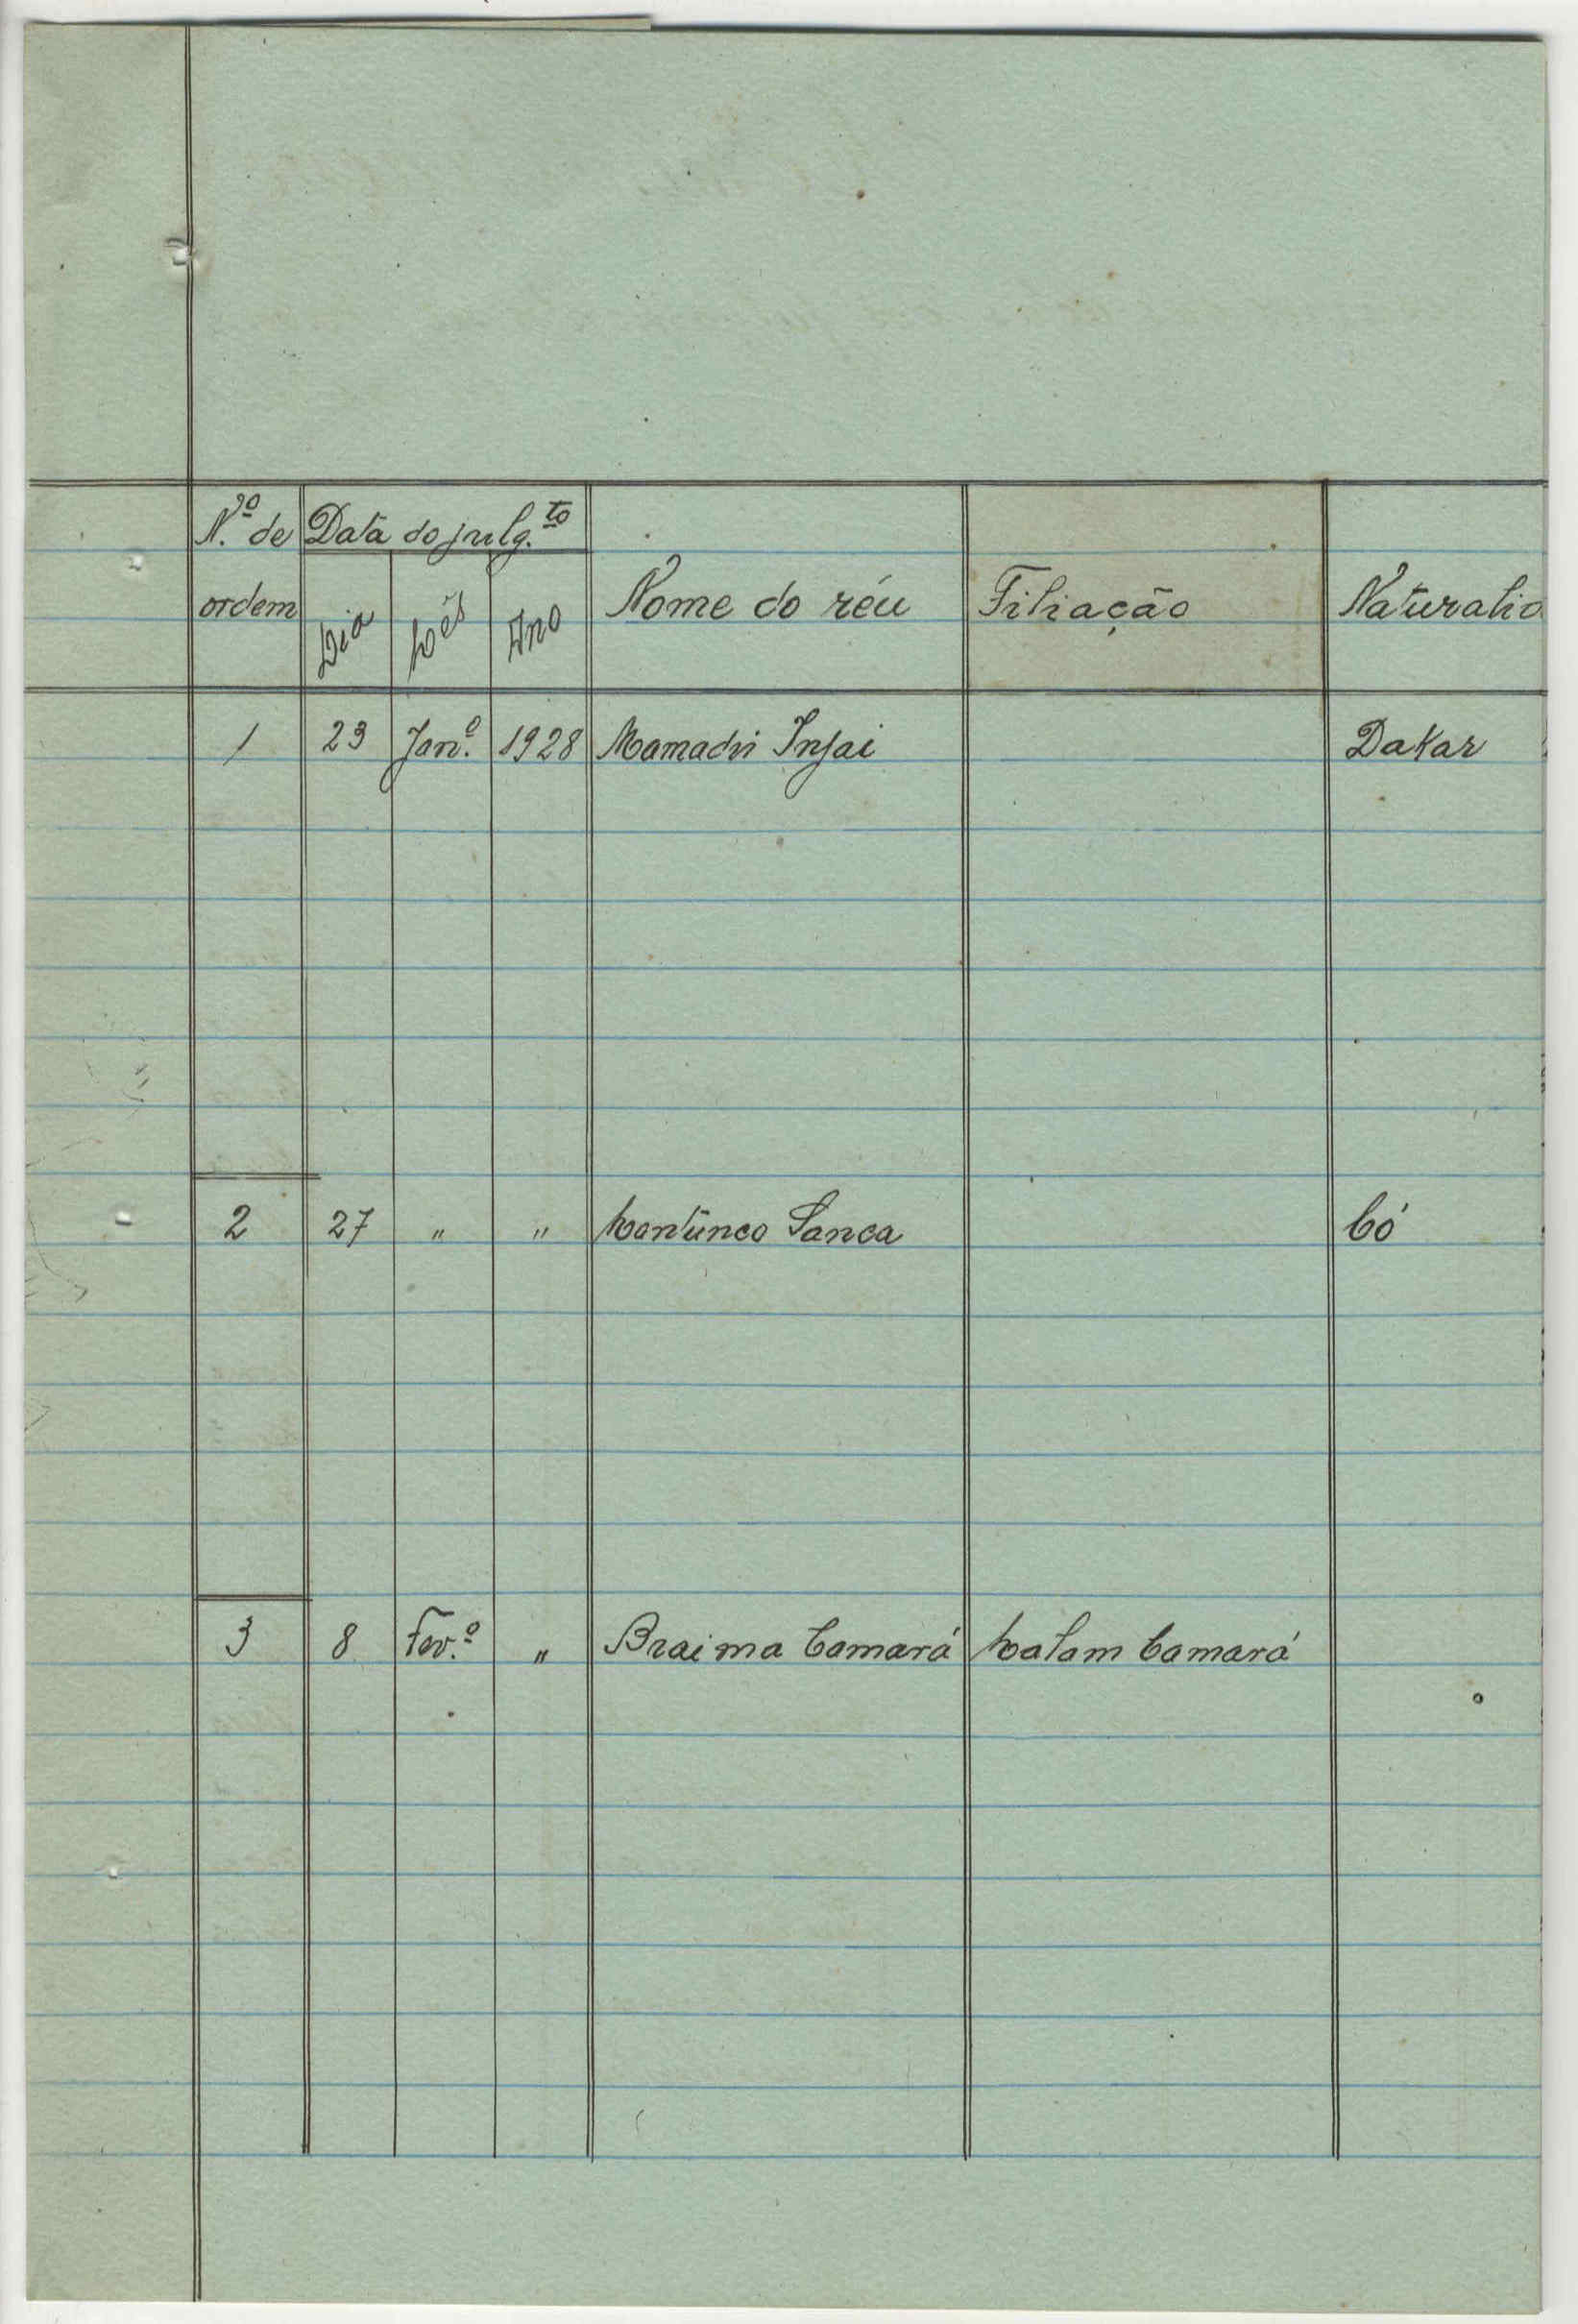 N.º de Data do julg.to
ordem Dia Mês Ano Nome do réu Filiação Naturalid
1 23 Jan.º 1928 Mamadú Injai Dakar
2 27 " " Mantünco Sanca Có
3 8 Fev.º " Braima Camará Malam Camará